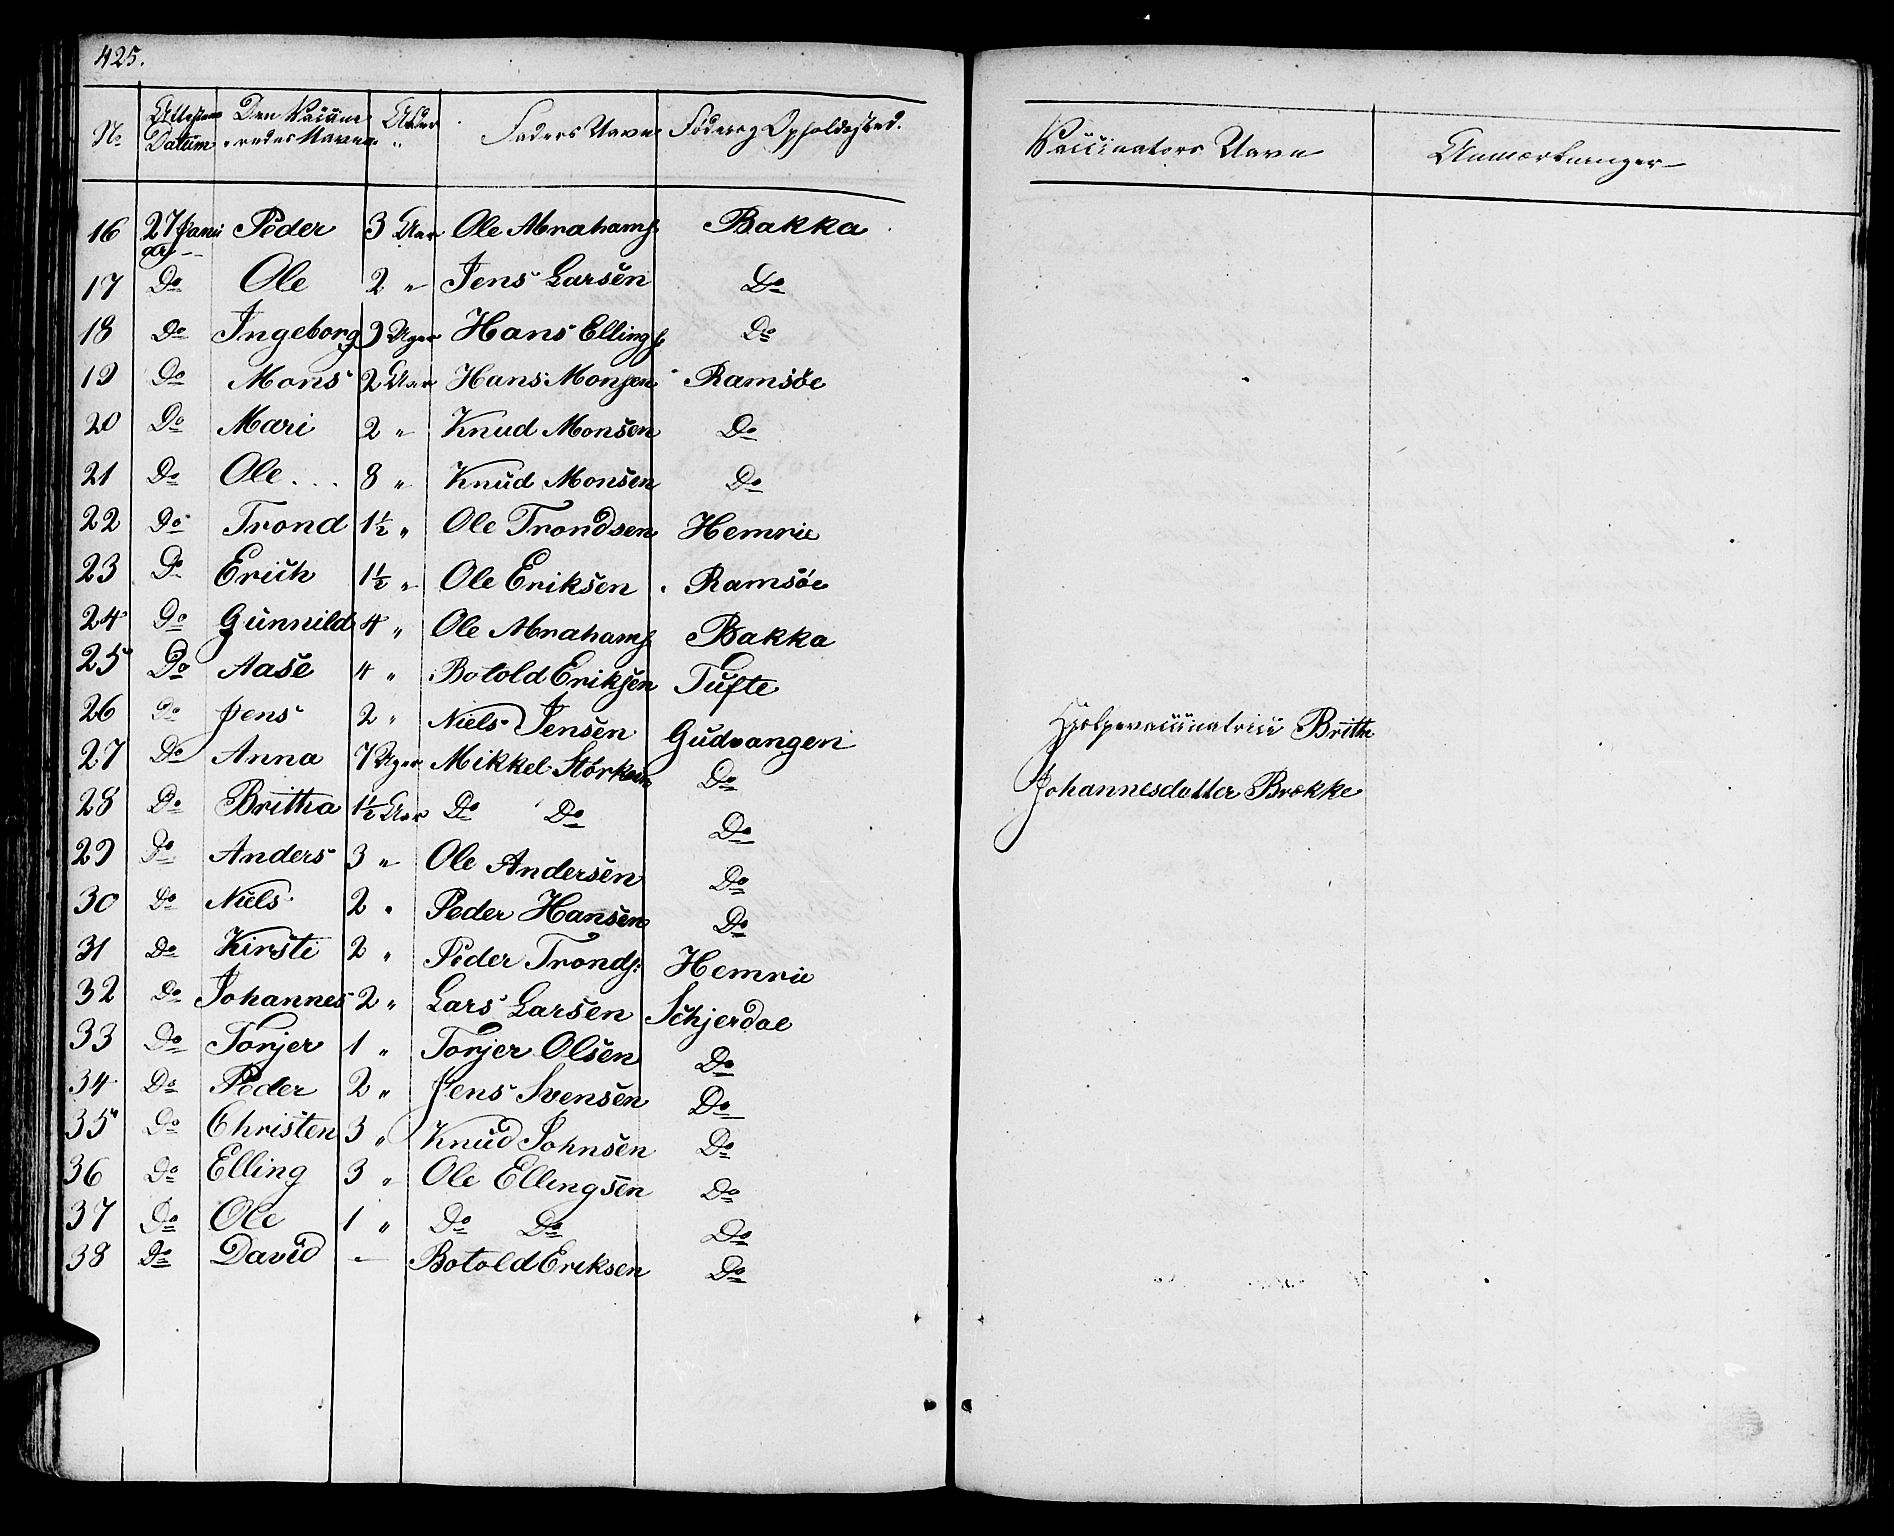 425.
No Attestens Datum Den Vaccine- redes Navn Alder Faders Navn Føde og Opholdssted.
16 27 Janu ary Peder 3 Aar Ole Abrahams. Bakka
17 Do Ole 2 " Jens Larsen Do
18 Do Ingeborg 9 Uger Hans Ellings. Do
19 Do Mons 2 Aar Hans Monsen Ramsöe
20 Do Mari 2 " Knud Monsen Do
21 Do Ole... 8 " Knud Monsen Do
22 Do Trond 1½ " Ole Trondsen Hemrie
23 Do Erich 1½ " Ole Eriksen Ramsöe
24 Do Gunnild 4 " Ole Abrahams. Bakka
25 Do Aase 4 " Botold Eriksen Tufte
26 Do Jens 2 " Niels Jensen Gudvangen
27 Do Anna 7 Uger Mikkel Størksen Do
28 Do Britha 1½ Aar Do Do Do
29 Do Anders 3 " Ole Andersen Do
30 Do Niels 2 " Peder Hansen Do
31 Do Kirsti 2 " Peder Tronds: Hemrie
32 Do Johannes 2 " Lars Larsen Schjerdal
33 Do Torjer 1 " Torjer Olsen Do
34 Do Peder 2 " Jens Svensen Do
35 Do Christen 3 " Knud Johnsen Do
36 Do Elling 3 " Ole Ellingsen Do
37 Do Ole 1 " Do Do Do
38 Do David - Botold Eriksen Do
Vaccinators Navn Anmærkninger
Hjelpevaccinatrice Brithe
Johannesdatter Brække